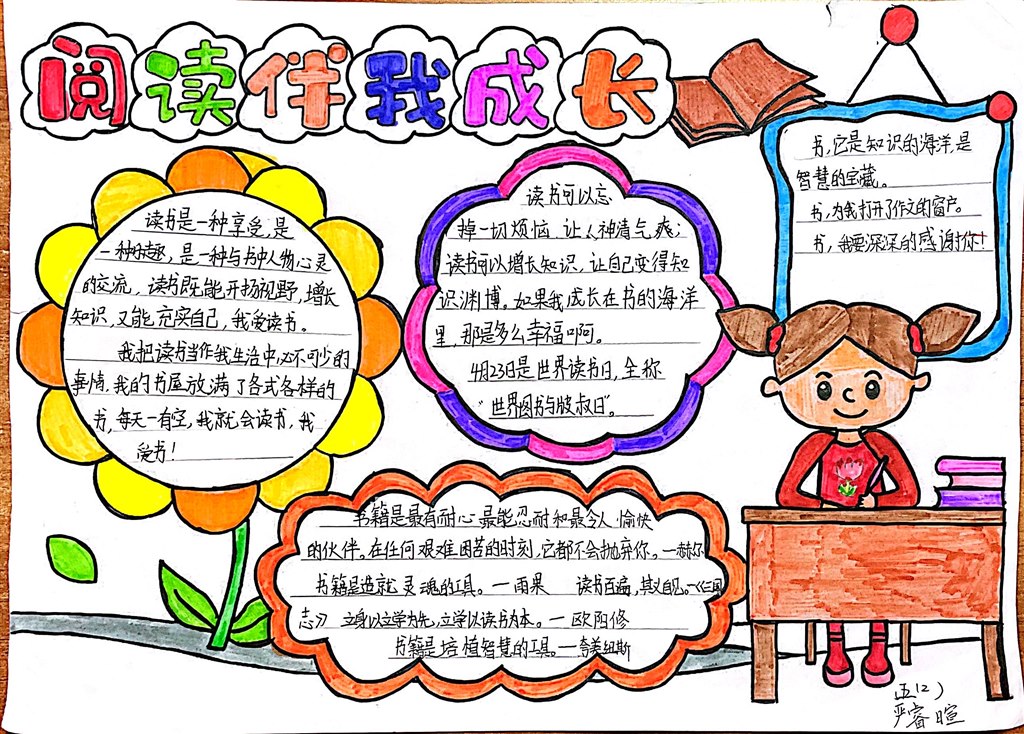 阅读伴我成长
书,它是知识的海洋,是
智慧的宝藏。
书,为我打开了作文的窗户。
书,我要深深的感谢你!
读书是一种享受,是
一种乐趣,是一种与书中人物心灵
的交流,读书既能开扬视野,增长
知识,又能充实自己,我爱读书。
我把读书当作我生活中必不可少的
事情.我的书屋放满了各式各样的
书,每天一有空,我就会读书,我
爱书!
读书可以忘
掉一切烦恼,让人神清气爽;
读书可以增长知识,让自己变得知
识渊博。如果我成长在书的海洋
里,那是多么幸福啊。
4月23日是世界读书日,全称
“世界图书与版权日”。
书籍是最有耐心.最能忍耐和最令人愉快
的伙伴。在任何艰难困苦的时刻,它都不会抛弃你。—赫尔
书籍是造就灵魂的工具。—雨果 读书百遍,其义自见。—《三国
志》 立身以立学为先,立学以读书为本。—欧阳修
书籍是培植智慧的工具。—夸美纽斯
五(2)
严睿暄